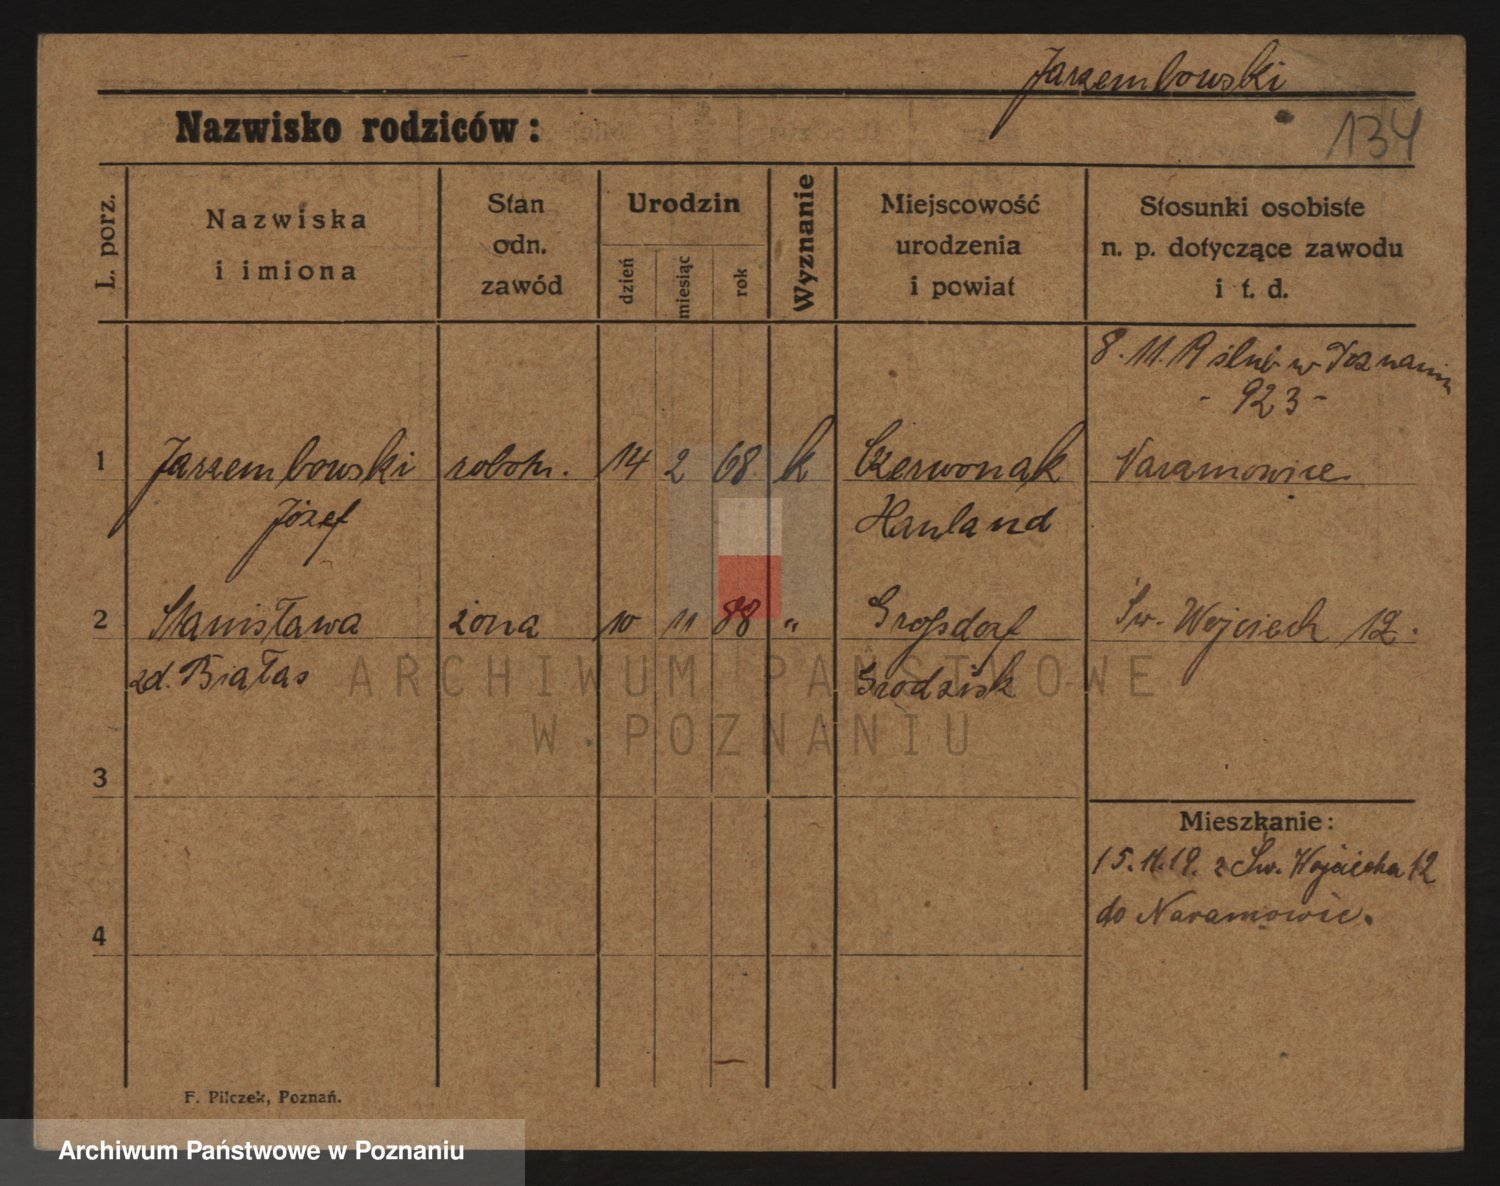 Jarzembowski
Nazwisko rodziców:
134
L. porz.
Nazwiska
i imiona
Stan
odn.
zawód
Urodzin
dzień
miesiąc
rok
Wyznanie
Miejscowość
urodzenia
i powiat
Stosunki osobiste
n. p. dotyczące zawodu
i t. d.
8. 11. R ślub w Poznaniu
- 923 -
1 Jarzembowski robotn. 14 2 68. k Czerwonak Naramowice
Józef Hauland
2 Stanisława żona 10 11 88 " Großdorf Św. Wojciech 12.
zd. Białas Grodzisk
3
Mieszkanie:
15.11.19. z Św. Wojciecha 12
do Naramowic.
4
F. Pilczek, Poznań.
ARCHIWUM PAŃSTWOWE
W POZNANIU
Archiwum Państwowe w Poznaniu